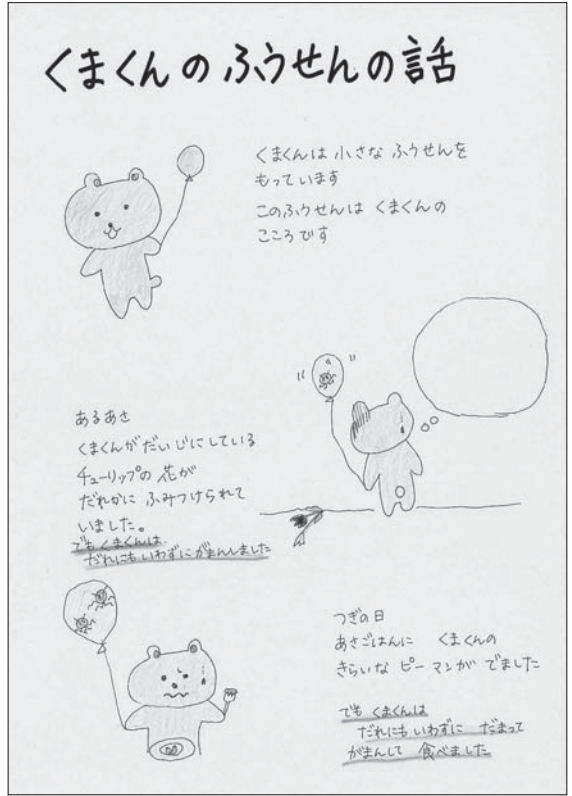 くまくんのふうせんの話
くまくんは 小さな ふうせんを
もって います
このふうせんは くまくんの
こころです
あるあさ
くまくんがだいじにしている
チューリップの花が
だれかに ふみつけられて
いました。
でも くまくんは
だれにもいわずにがまんしました
つぎの日
あさごはんに くまくんの
きらいな ピーマンが でました
でも くまくんは
だれにもいわずに だまって
がまんして 食べました